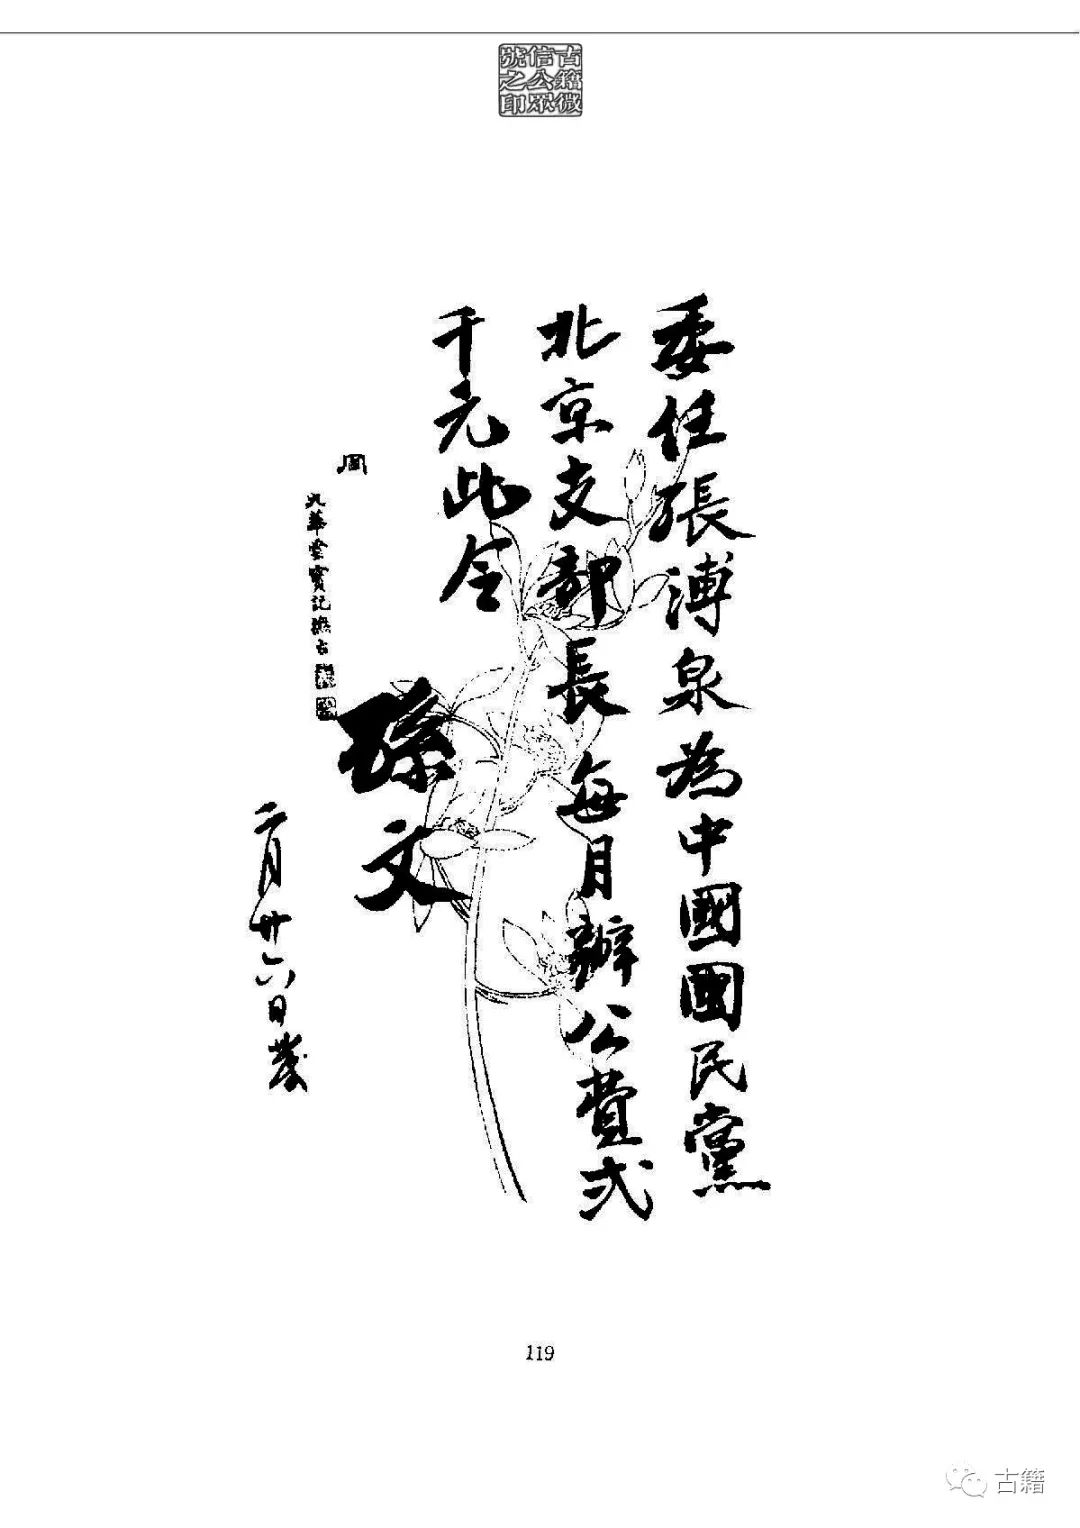 古籍微
信公眾
號之印
委任張溥泉為中國國民黨
北京支部長每月辦公費弍
千元此令
孫文
二月廿六日發
九華堂寶記撫古
119
古籍